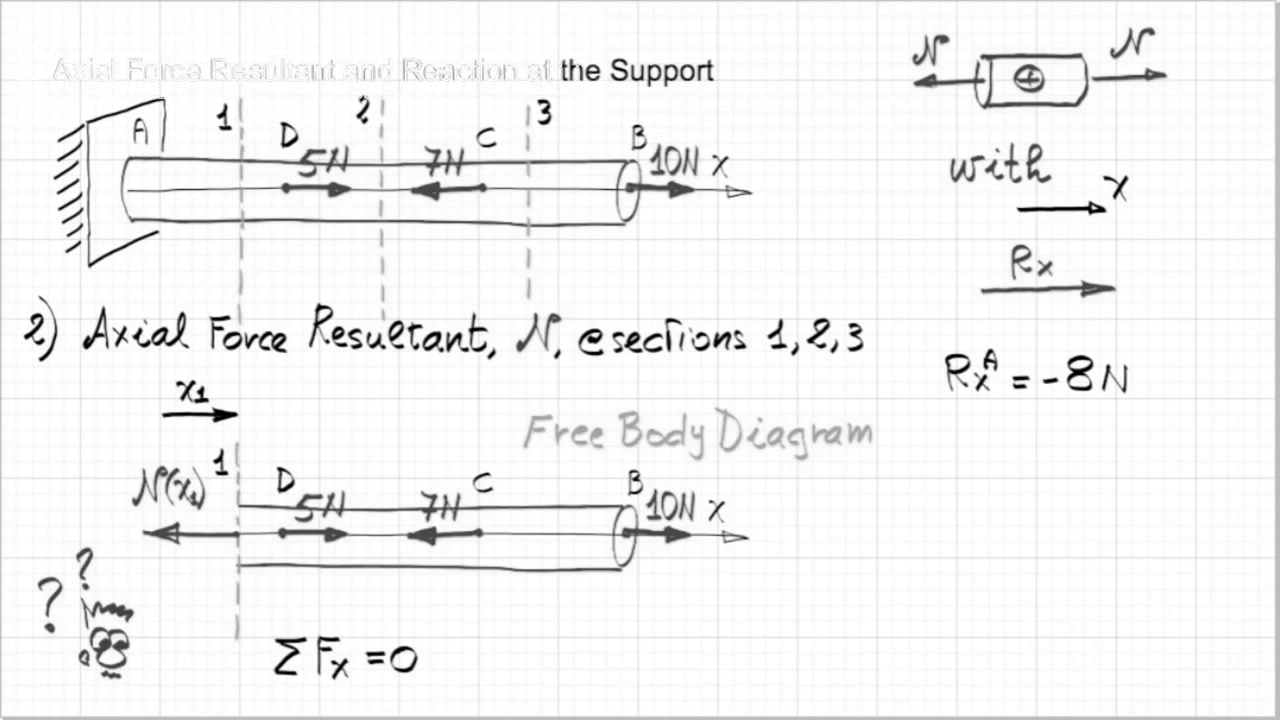 Axial Force Resultant and Reaction at the Support
N N
1 2 3
A D 5N 7N C B 10N x
with
x
Rx
2) Axial Force Resultant, N, @sections 1,2,3
RxA = -8N
x1
Free Body Diagram
1
N(x1) D 5N 7N C B 10N x
? ?
ΣFx =0